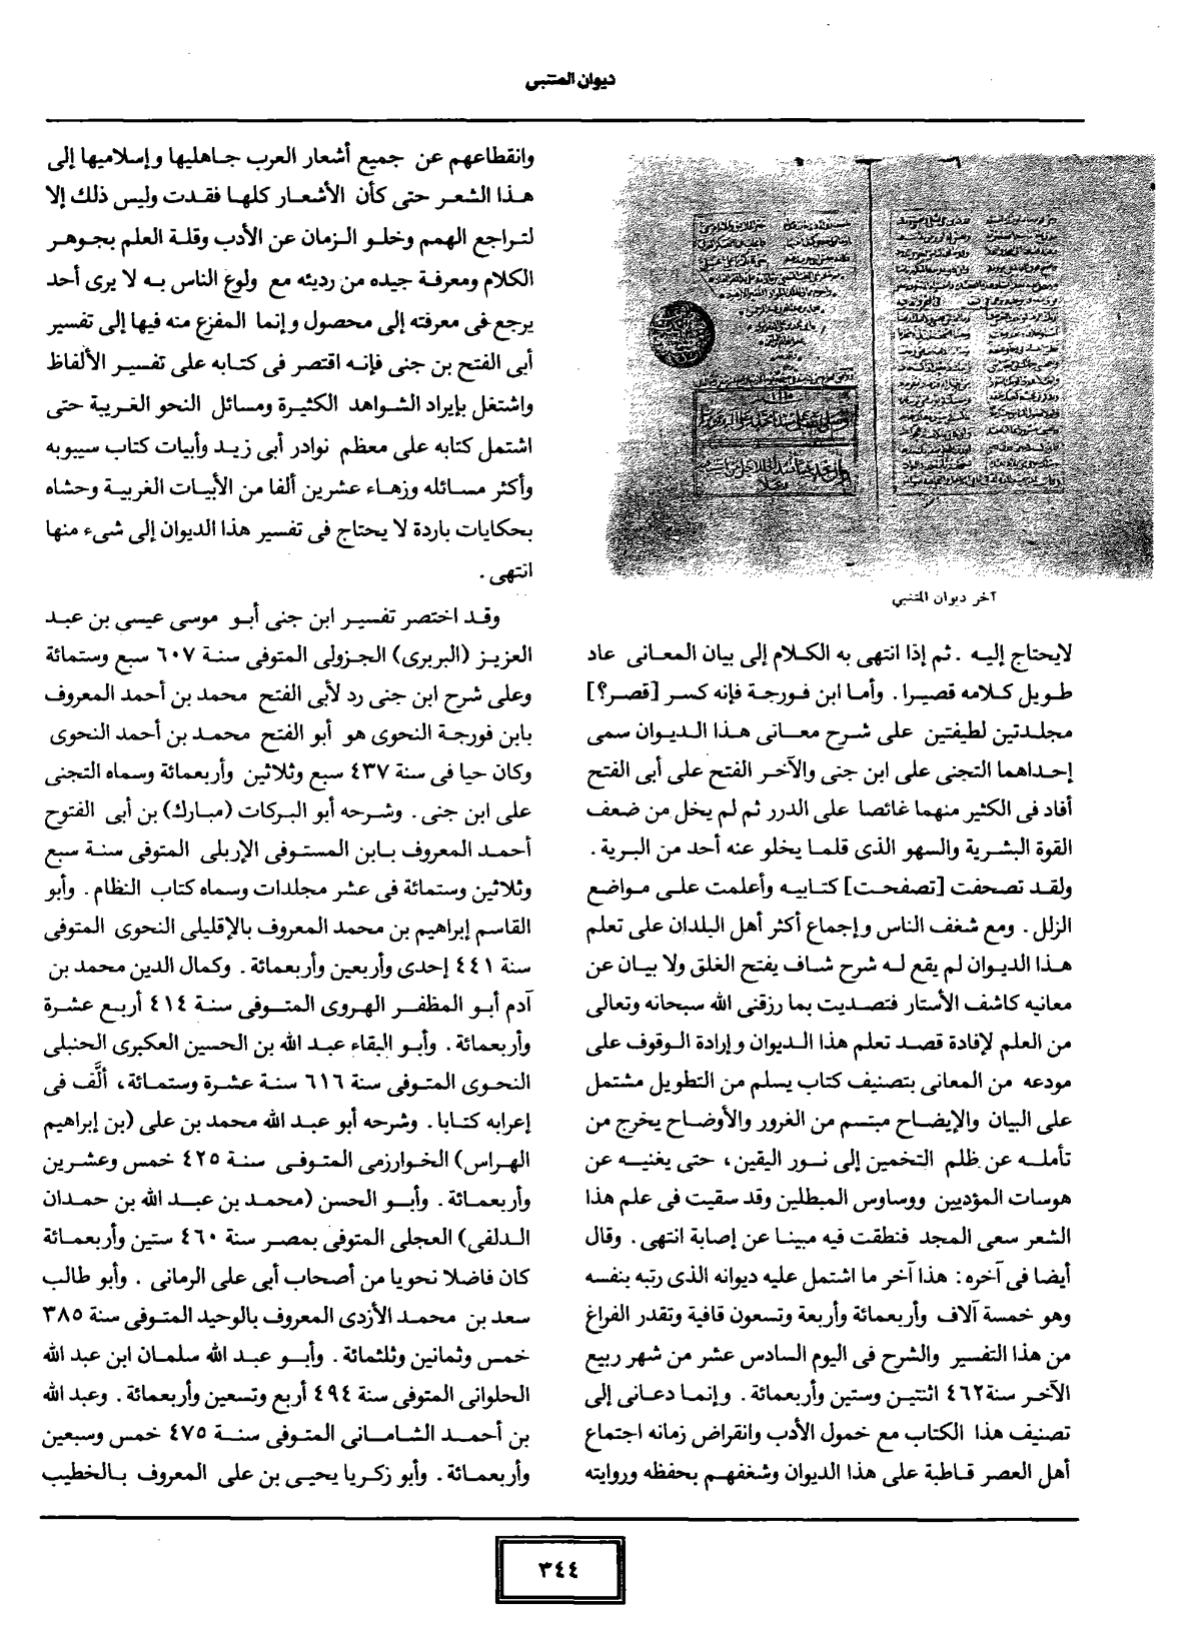 ديوان المتنبي
آخر ديوان المتنبي
لايحتاج إليه . ثم إذا انتهى به الكلام إلى بيان المعانى عاد
طويل كلامه قصيرا . وأما ابن فورجة فإنه كسر [قصر؟]
مجلدتين لطيفتين على شرح معانى هذا الديوان سمى
إحداهما التجنى على ابن جنى والآخر الفتح على أبى الفتح
أفاد فى الكثير منهما غائصا على الدرر ثم لم يخل من ضعف
القوة البشرية والسهو الذى قلما يخلو عنه أحد من البرية .
ولقد تصحفت [تصفحت] كتابيه وأعلمت على مواضع
الزلل . ومع شغف الناس وإجماع أكثر أهل البلدان على تعلم
هذا الديوان لم يقع له شرح شاف يفتح الغلق ولا بيان عن
معانيه كاشف الأستار فتصديت بما رزقنى الله سبحانه وتعالى
من العلم لإفادة قصد تعلم هذا الديوان وإرادة الوقوف على
مودعه من المعانى بتصنيف كتاب يسلم من التطويل مشتمل
على البيان والإيضاح مبتسم من الغرور والأوضاح يخرج من
تأمله عن ظلم التخمين إلى نور اليقين، حتى يغنيه عن
هوسات المؤدبين ووساوس المبطلين وقد سقيت فى علم هذا
الشعر سعى المجد فنطقت فيه مبينا عن إصابة انتهى . وقال
أيضا فى آخره : هذا آخر ما اشتمل عليه ديوانه الذى رتبه بنفسه
وهو خمسة آلاف وأربعمائة وأربعة وتسعون قافية وتقدر الفراغ
من هذا التفسير والشرح فى اليوم السادس عشر من شهر ربيع
الآخر سنة ٤٦٢ اثنتين وستين وأربعمائة . وإنما دعانى إلى
تصنيف هذا الكتاب مع خمول الأدب وانقراض زمانه اجتماع
أهل العصر قاطبة على هذا الديوان وشغفهم بحفظه وروايته
وانقطاعهم عن جميع أشعار العرب جاهليها وإسلاميها إلى
هذا الشعر حتى كأن الأشعار كلها فقدت وليس ذلك إلا
لتراجع الهمم وخلو الزمان عن الأدب وقلة العلم بجوهر
الكلام ومعرفة جيده من رديئه مع ولوع الناس به لا يرى أحد
يرجع فى معرفته إلى محصول وإنما المفزع منه فيها إلى تفسير
أبى الفتح بن جنى فإنه اقتصر فى كتابه على تفسير الألفاظ
واشتغل بإيراد الشواهد الكثيرة ومسائل النحو الغريبة حتى
اشتمل كتابه على معظم نوادر أبى زيد وأبيات كتاب سيبويه
وأكثر مسائله وزهاء عشرين ألفا من الأبيات الغربية وحشاه
بحكايات باردة لا يحتاج فى تفسير هذا الديوان إلى شىء منها
انتهى .
وقد اختصر تفسير ابن جنى أبو موسى عيسى بن عبد
العزيز (البربرى) الجزولى المتوفى سنة ٦٠٧ سبع وستمائة
وعلى شرح ابن جنى رد لأبى الفتح محمد بن أحمد المعروف
بابن فورجة النحوى هو أبو الفتح محمد بن أحمد النحوى
وكان حيا فى سنة ٤٣٧ سبع وثلاثين وأربعمائة وسماه التجنى
على ابن جنى . وشرحه أبو البركات (مبارك) بن أبى الفتوح
أحمد المعروف بابن المستوفى الإربلى المتوفى سنة سبع
وثلاثين وستمائة فى عشر مجلدات وسماه كتاب النظام . وأبو
القاسم إبراهيم بن محمد المعروف بالإقليلى النحوى المتوفى
سنة ٤٤١ إحدى وأربعين وأربعمائة . وكمال الدين محمد بن
آدم أبو المظفر الهروى المتوفى سنة ٤١٤ أربع عشرة
وأربعمائة . وأبو البقاء عبد الله بن الحسين العكبرى الحنبلى
النحوى المتوفى سنة ٦١٦ ستة عشرة وستمائة، ألَّف فى
إعرابه كتابا . وشرحه أبو عبد الله محمد بن على (بن إبراهيم
الهراس) الخوارزمى المتوفى سنة ٤٢٥ خمس وعشرين
وأربعمائة . وأبو الحسن (محمد بن عبد الله بن حمدان
الدلفى) العجلى المتوفى بمصر سنة ٤٦٠ ستين وأربعمائة
كان فاضلا نحويا من أصحاب أبى على الرمانى . وأبو طالب
سعد بن محمد الأزدى المعروف بالوحيد المتوفى سنة ٣٨٥
خمس وثمانين وثلثمائة . وأبو عبد الله سلمان ابن عبد الله
الحلوانى المتوفى سنة ٤٩٤ أربع وتسعين وأربعمائة . وعبد الله
بن أحمد الشامانى المتوفى سنة ٤٧٥ خمس وسبعين
وأربعمائة . وأبو زكريا يحيى بن على المعروف بالخطيب
٣٤٤